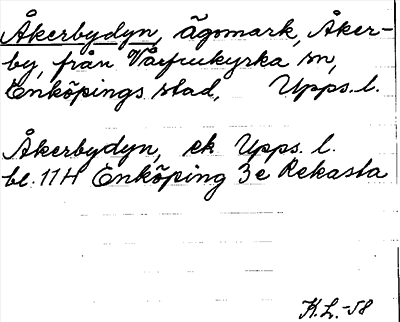 Åkerbydyn, ägomark, Åker-
by, från Vårfrukyrka sn,
Enköpings stad, Upps. l.
Åkerbydyn, ek Upps. l.
bl. 11H Enköping 3e Rekasta
K.L.-58